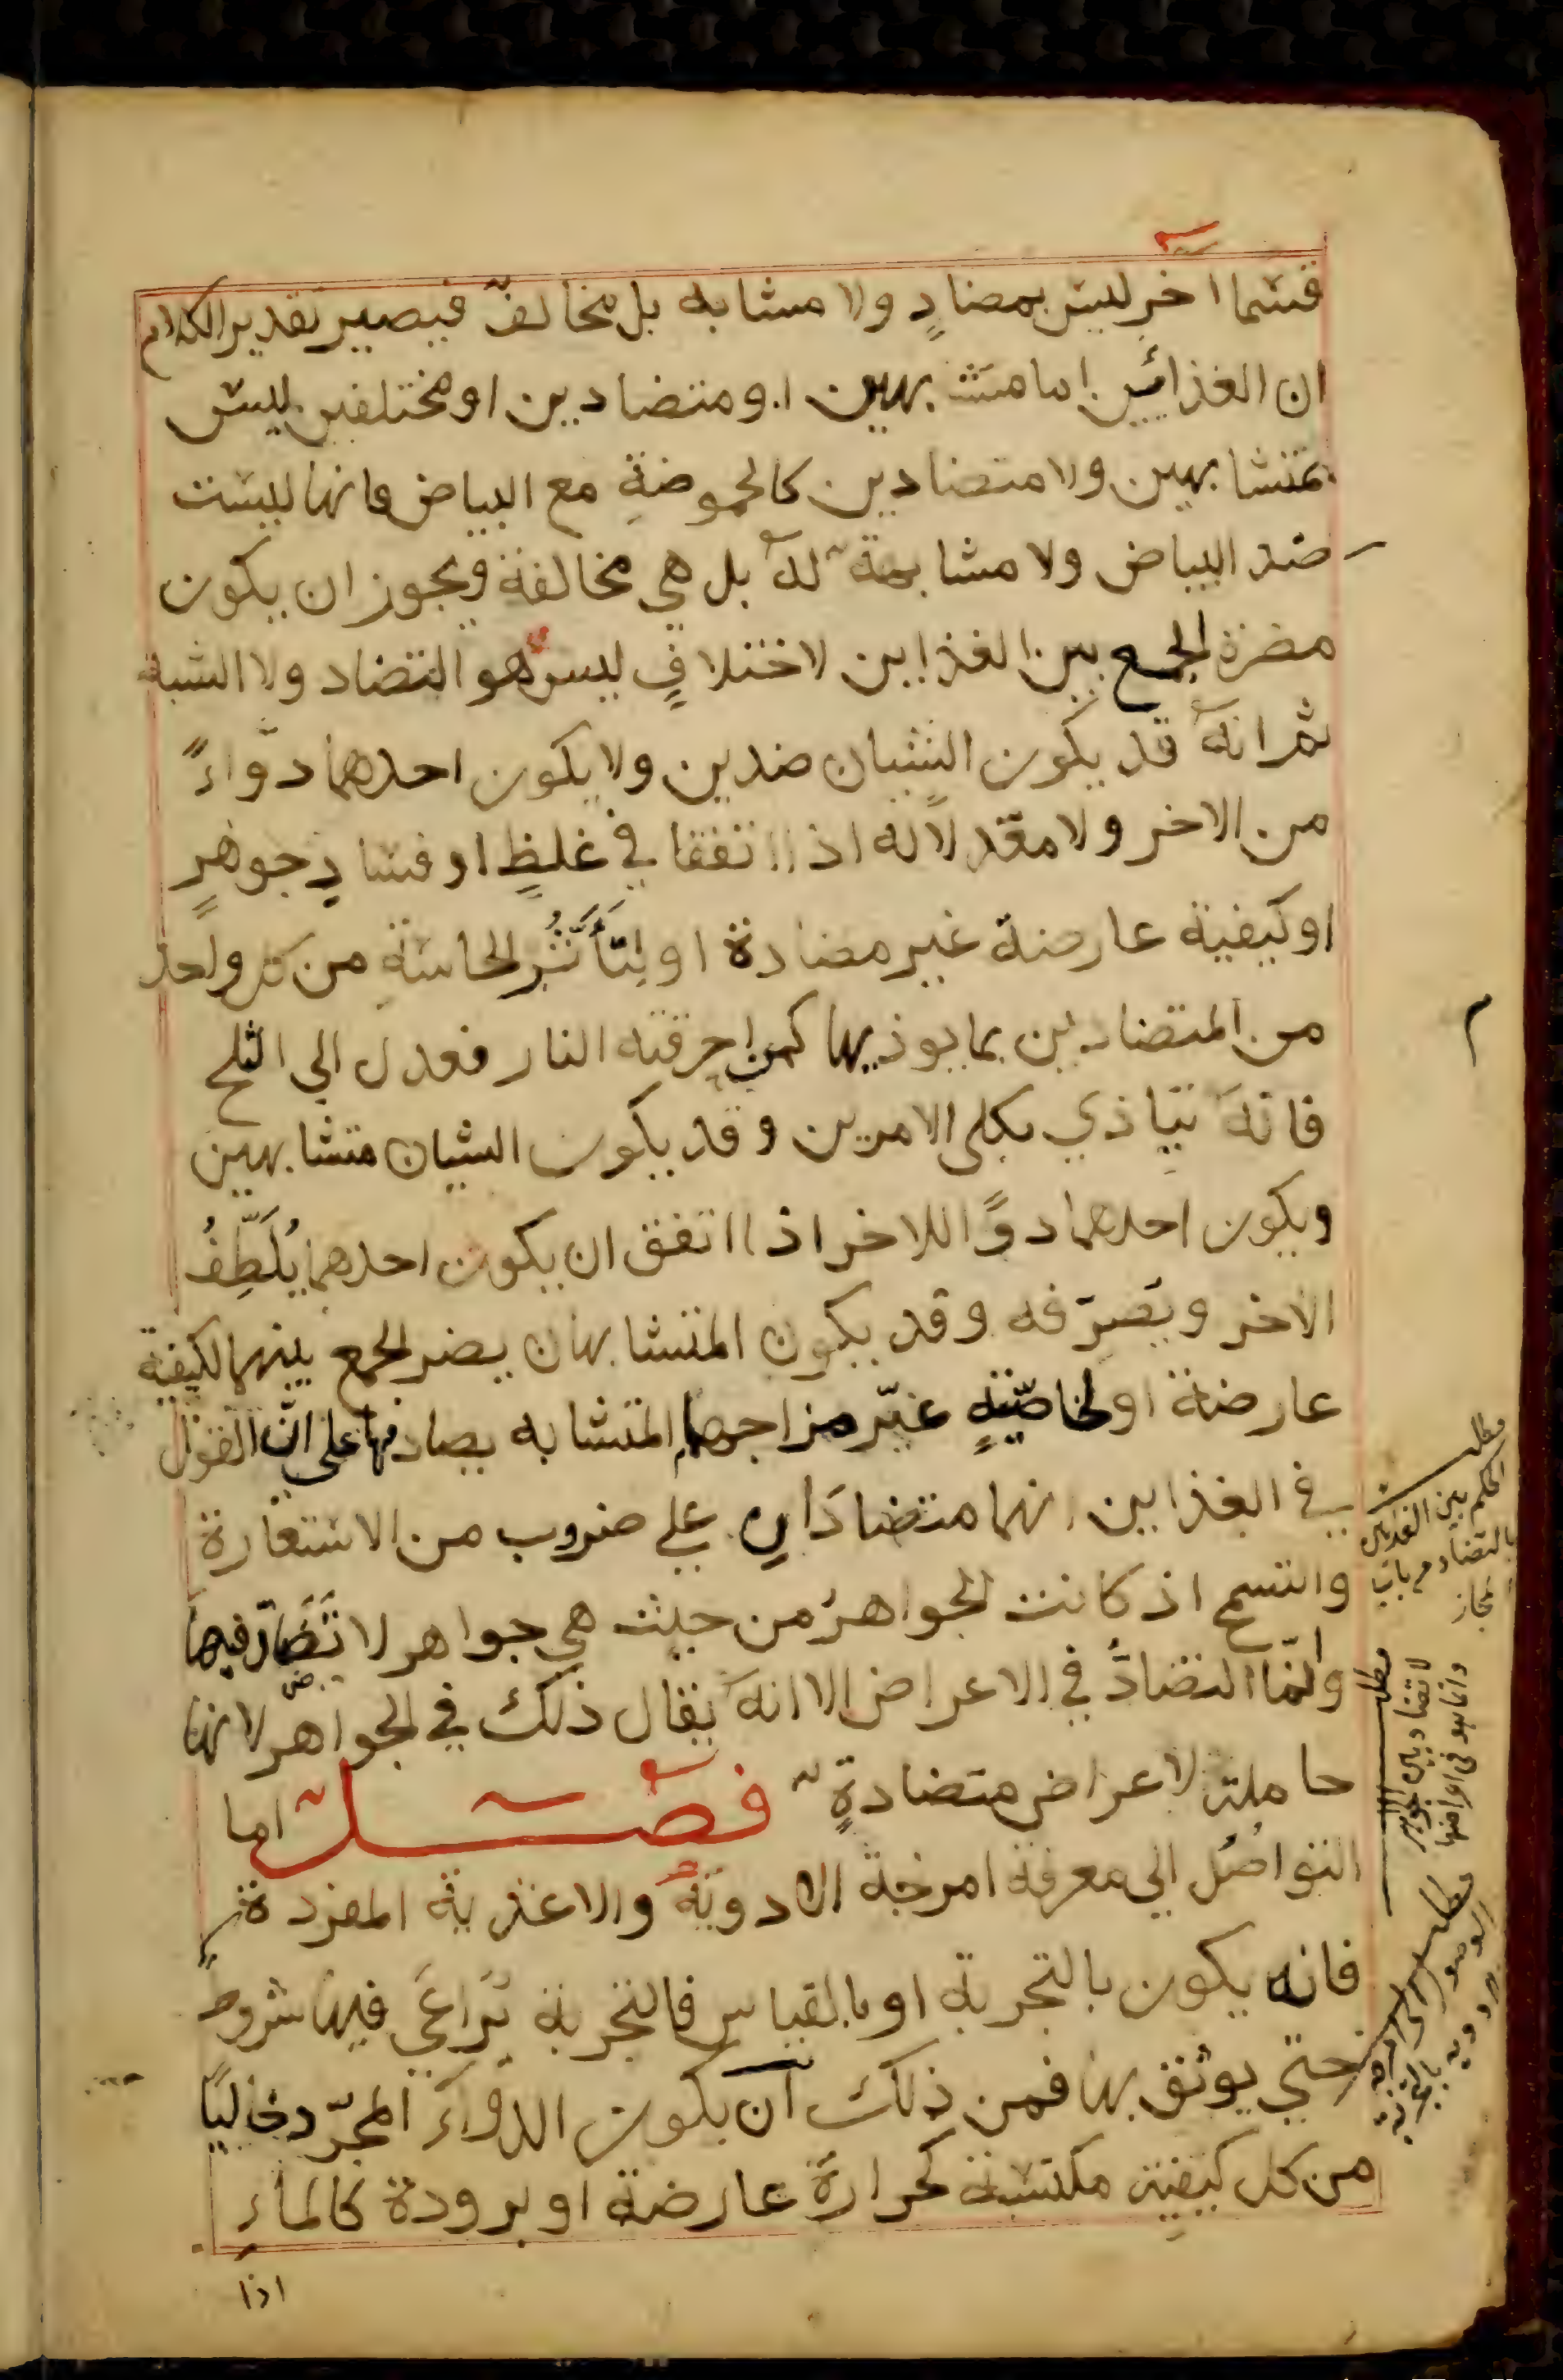 قسما اخر ليس بمضادٍ ولا مشابه بل مخالفٌ فيصير تقدير الكلام
ان الغذائين اما متشابهين او متضادين او مختلفين ليس
بمتشابهين ولا متضادين كالحموضةِ مع البياض فانها ليست
ضد البياض ولا مشابهة له بل هي مخالفة ويجوز ان يكون
مضرة الجمع بين الغذاين لاختلافٍ ليس هو التضاد ولا الشبه
ثم انه قد يكون الشيئان ضدين ولا يكون احدهما دوّاءً
من الاخر ولا معدلا له اذا اتفقا في غلظٍ او فسادِ جوهرٍ
او كيفية عارضة غير مضادة او لِتَأَثُّرِ الحاسّةِ من كل واحد
من المتضادين بما يوذيها كمن احرقته النار فعدل الي الثلج
فانه يتاذي بكلى الامرين وقد يكون الشيان متشابهين
ويكون احدهما دوًا للاخر اذا اتفق ان يكون احدهما يُلَطِّفُ
الاخر ويصرّفه وقد يكون المتشابهان يضر الجمع بينهما لكيفية
عارضة او لخاصّيّةٍ غيّر مزاجهما المتشابه يصادفها على انّ القول
في الغذاين انهما متضادَانِ علي ضروب من الاستعارة
والتسمح اذ كانت الجواهرُ من حيث هي جواهر لا تَضَادّ فيها
وانّما التضادُّ في الاعراض الا انه يقال ذلك في الجواهر لانها
حاملة لاعراض متضادةٍ فصل اما
التواصُل الي معرفة امزجة الادوية والاغذية المفردة
فانه يكون بالتجربة او بالقياس فالتجربة يُرَاعَي فيها شروط
حتي يوثق بها فمن ذلك ان يكون الدوآء المجرّد خاليًا
من كل كيفية مكتسبة كحرارة عارضة او برودة كالماءِ
اذا
م
مطلب
الحكم بين الغذاين
بالتضاد من باب
مجاز
مطلب
لا تضاد بين الجواهر
وانما هو في اعراضها
مطلب
الوصول الى امزجة
الادوية بالتجربة